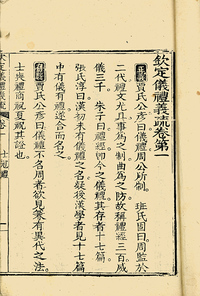 欽定儀禮義疏卷第一
正義賈氏公彥曰儀禮周公所制 班氏固曰周監於
二代禮文尤具事為之制曲為之防故稱禮經三百威
儀三千 朱子曰禮經即今之儀禮其存者十七篇
張氏淳曰漢初未有儀禮之名疑後漢學者見十七篇
中有儀有禮遂合而名之
賈氏公彥曰儀禮不名周者欲見兼有異代之法
士喪禮商祝夏祝其證也
士冠禮